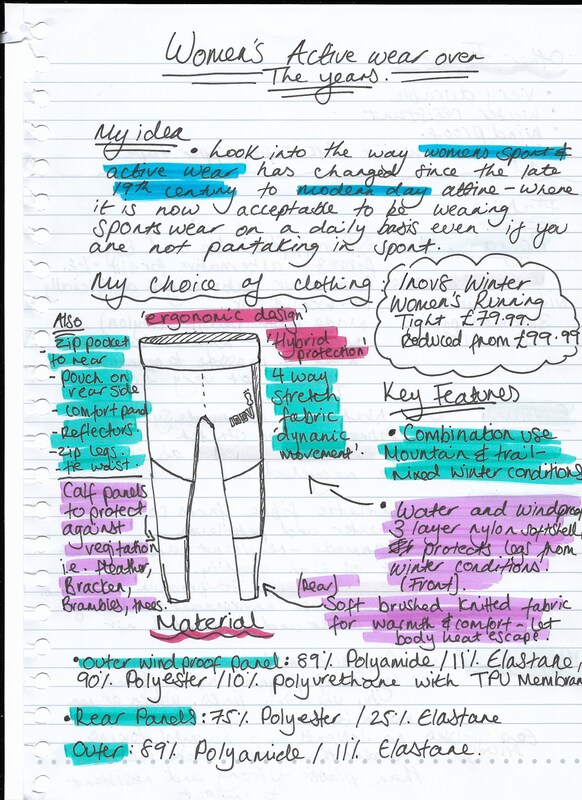 Women's Active wear over
The years.
My idea
• Look into the way womens sport &
active wear has changed since the late
19th century to modern day attire - where
it is now acceptable to be wearing
sportswear on a daily basis even if you
are not partaking in sport.
My choice of clothing:
Inov8 Winter
Women's Running
Tight £79.99.
Reduced from £99.99
'ergonomic design'
'Hybrid
protection'
4 way
stretch
fabric
'dynamic
movement'.
Also
- Zip pocket
to rear
- Pouch on
rear side
- comfort pand
- Reflectors.
- Zip legs.
tie waist.
Calf panels
to protect
against
vegitation
i.e. Heather,
Bracken,
Brambles, trees.
Key Features
• Combination use
Mountain & trail -
mixed winter conditions
• Water and windproof
3 layer nylon softshell
protects legs from
winter conditions
(Front).
(Rear)
Soft brushed knitted fabric
for warmth & comfort - let
body heat escape.
Material
• Outer windproof panel: 89% Polyamide / 11% Elastane,
90% Polyester / 10% polyurethane with TPU Membran
• Rear Panels: 75% Polyester / 25% Elastane
Outer: 89% Polyamide / 11% Elastane.